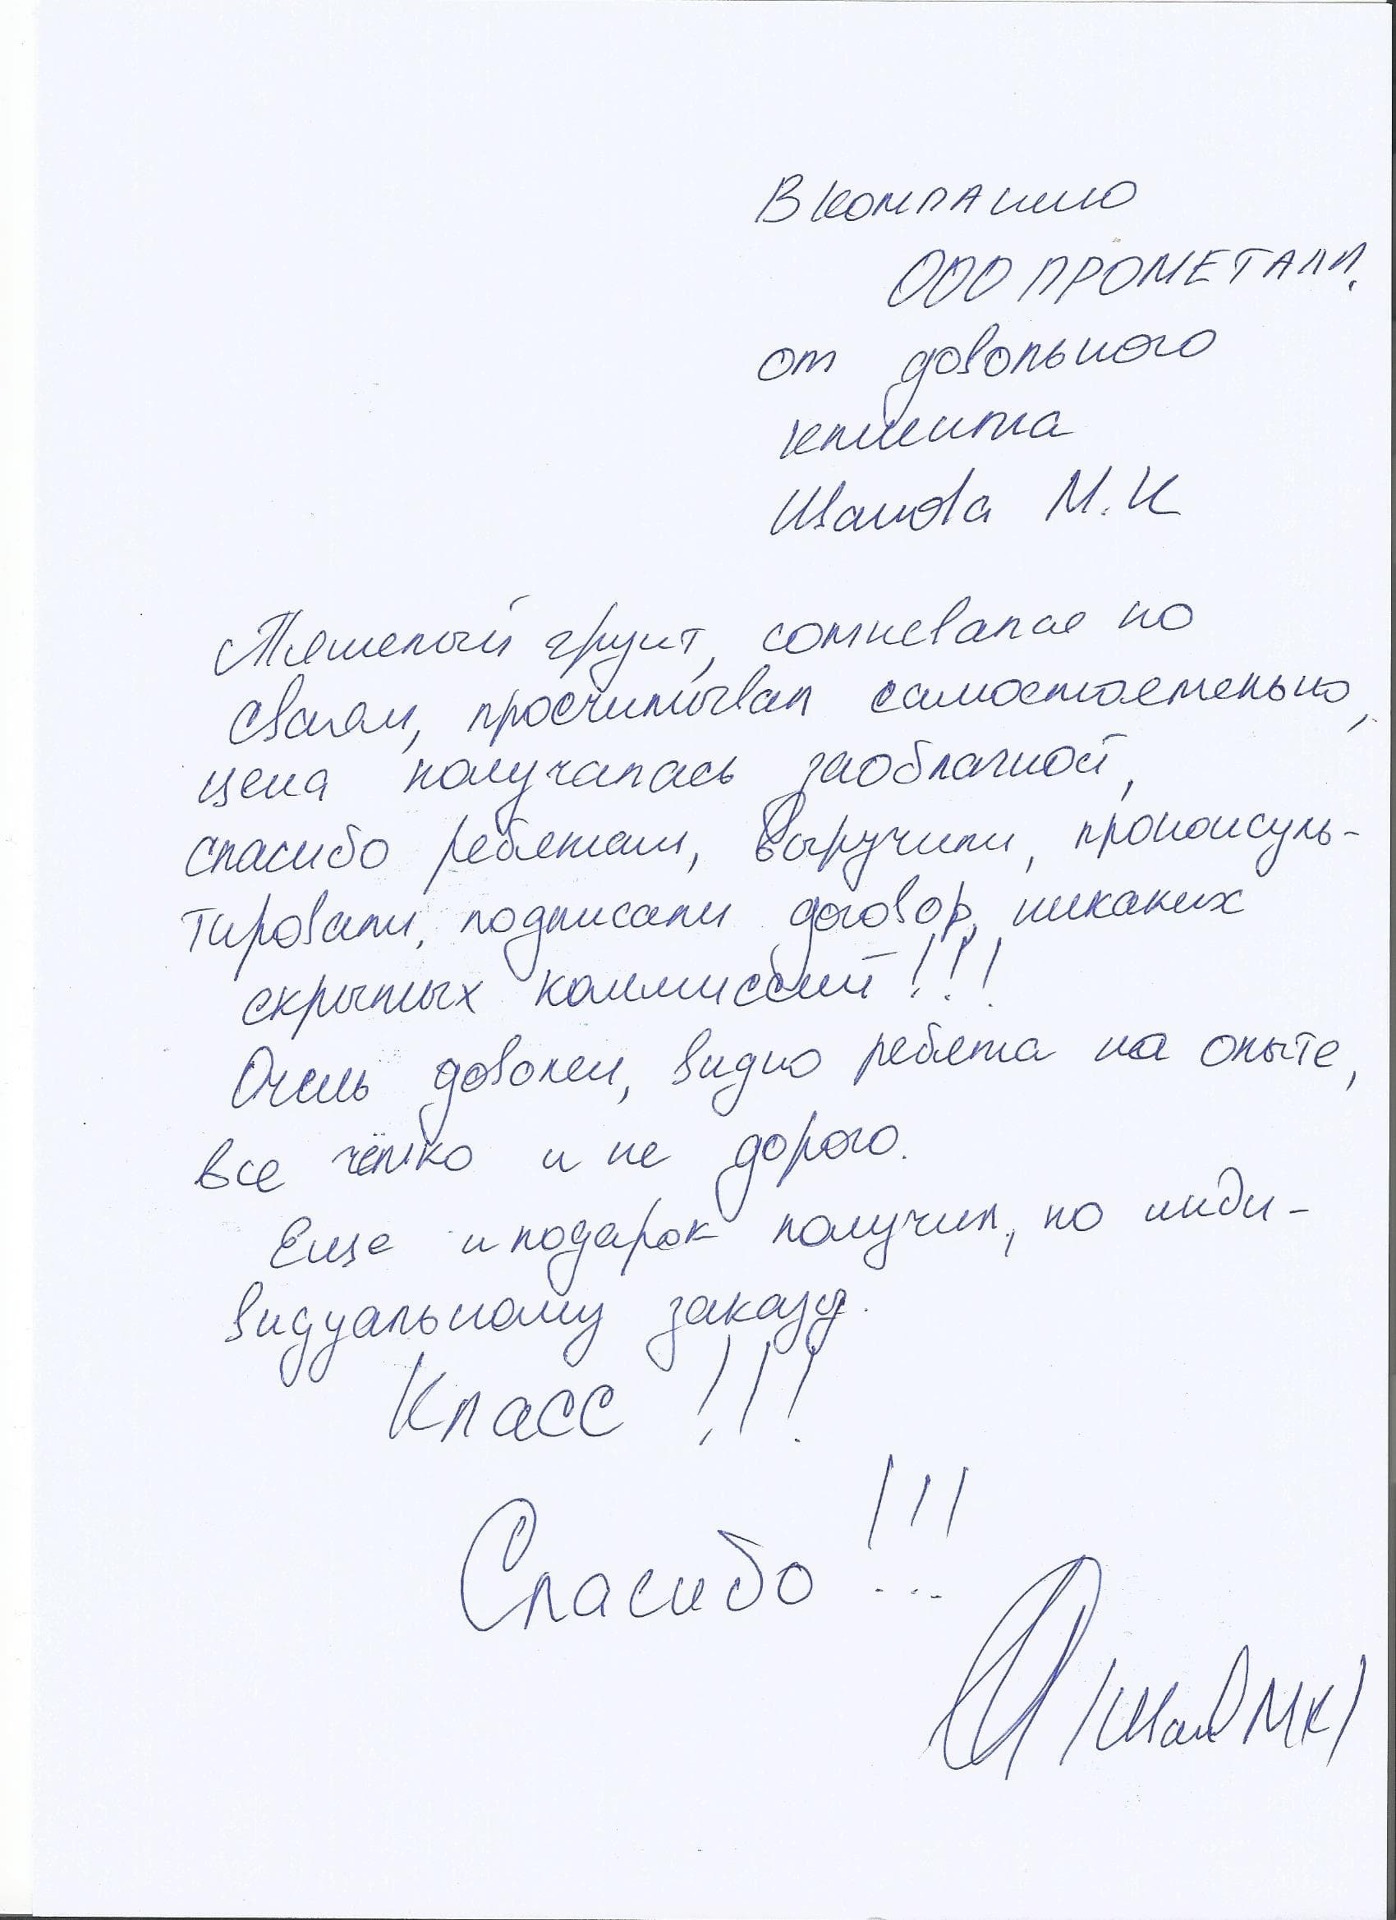 В компанию
ООО ПРОМЕТАЛЛ.
от довольного
клиента
Иванова М.К
Тяжелый грунт, сомневался по
сваям, просчитывал самостоятельно,
цена получалась заоблачной,
спасибо ребятам, выручили, проконсуль-
тировали, подписали договор, никаких
скрытых коммиссий!!!
Очень доволен, видно ребята на опыте,
все чётко и не дорого.
Еще и подарок получил, по инди-
видуальному заказу.
Класс!!!
Спасибо!!!